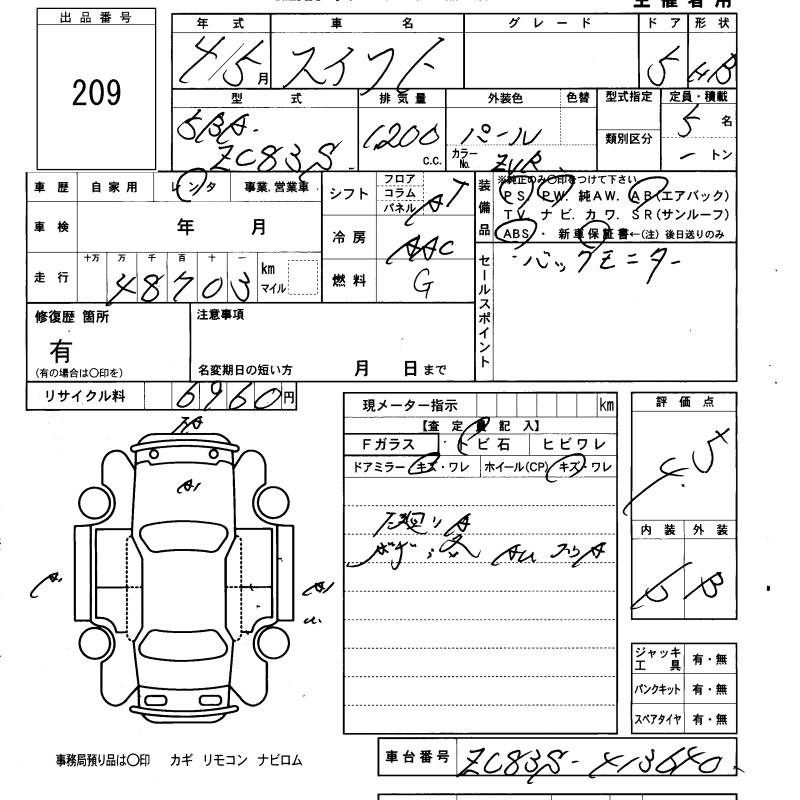 出品番号
209
年式 車名 グレード ドア 形状
4/5月 スイフト 5 HB
型式 排気量 外装色 色替 型式指定 定員・積載
5BA- 1200 c.c. パール 類別区分 5名
ZC83S カラーNo. ZVR ートン
車歴 自家用 レンタ 事業.営業車
車検 年 月
走行 十万 万 千 百 十 一
48703 km マイル
シフト フロア コラム パネル AT
冷房 AAC
燃料 G
装備品 ※純正のみ〇印をつけて下さい
PS. PW. 純AW. AB(エアバック)
TV. ナビ. カワ. SR(サンルーフ)
ABS・ 新車保証書←(注) 後日送りのみ
セールスポイント
・バックモニター
修復歴 箇所
有
(有の場合は〇印を)
注意事項
名変期日の短い方 月 日まで
リサイクル料 6960円
現メーター指示 km
【査定員記入】
Fガラス ・ トビ石 ヒビワレ
ドアミラー キズ・ワレ ホイール(CP) キズ・ワレ
評価点
4.5
内装 外装
B B
A1
A1
ジャッキ工具 有・無
パンクキット 有・無
スペアタイヤ 有・無
事務局預り品は〇印 カギ リモコン ナビロム
車台番号 ZC83S-413640